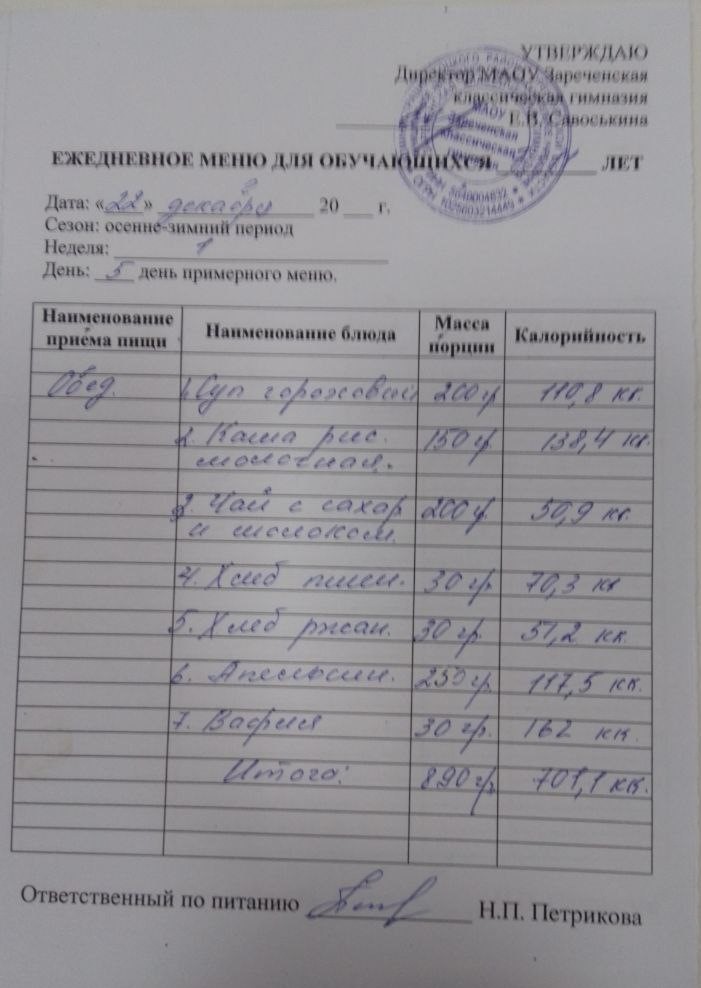 УТВЕРЖДАЮ
Директор МАОУ Зареченская
классическая гимназия
Е.В. Савоськина
МАОУ
Зареченская
классическая
гимназия
ЕЖЕДНЕВНОЕ МЕНЮ ДЛЯ ОБУЧАЮЩИХСЯ ЛЕТ
Дата: «22» декабря 20 ___ г.
Сезон: осенне-зимний период
Неделя: 1
День: 5 день примерного меню.
Наименование приёма пищи Наименование блюда Масса порции Калорийность
Обед. 1. Суп гороховый 200 гр 110,8 кк.
2. Каша рис. 150 гр 138,4 кк.
молочная.
3. Чай с сахар 200 гр 50,9 кк.
и молоком.
4. Хлеб пшен. 30 гр. 70,3 кк
5. Хлеб ржан. 30 гр. 51,2 кк.
6. Апельсин. 250 гр. 117,5 кк.
7. Вафля 30 гр. 162 кк.
Итого: 890 гр. 701,1 кк.
Ответственный по питанию Н.П. Петрикова